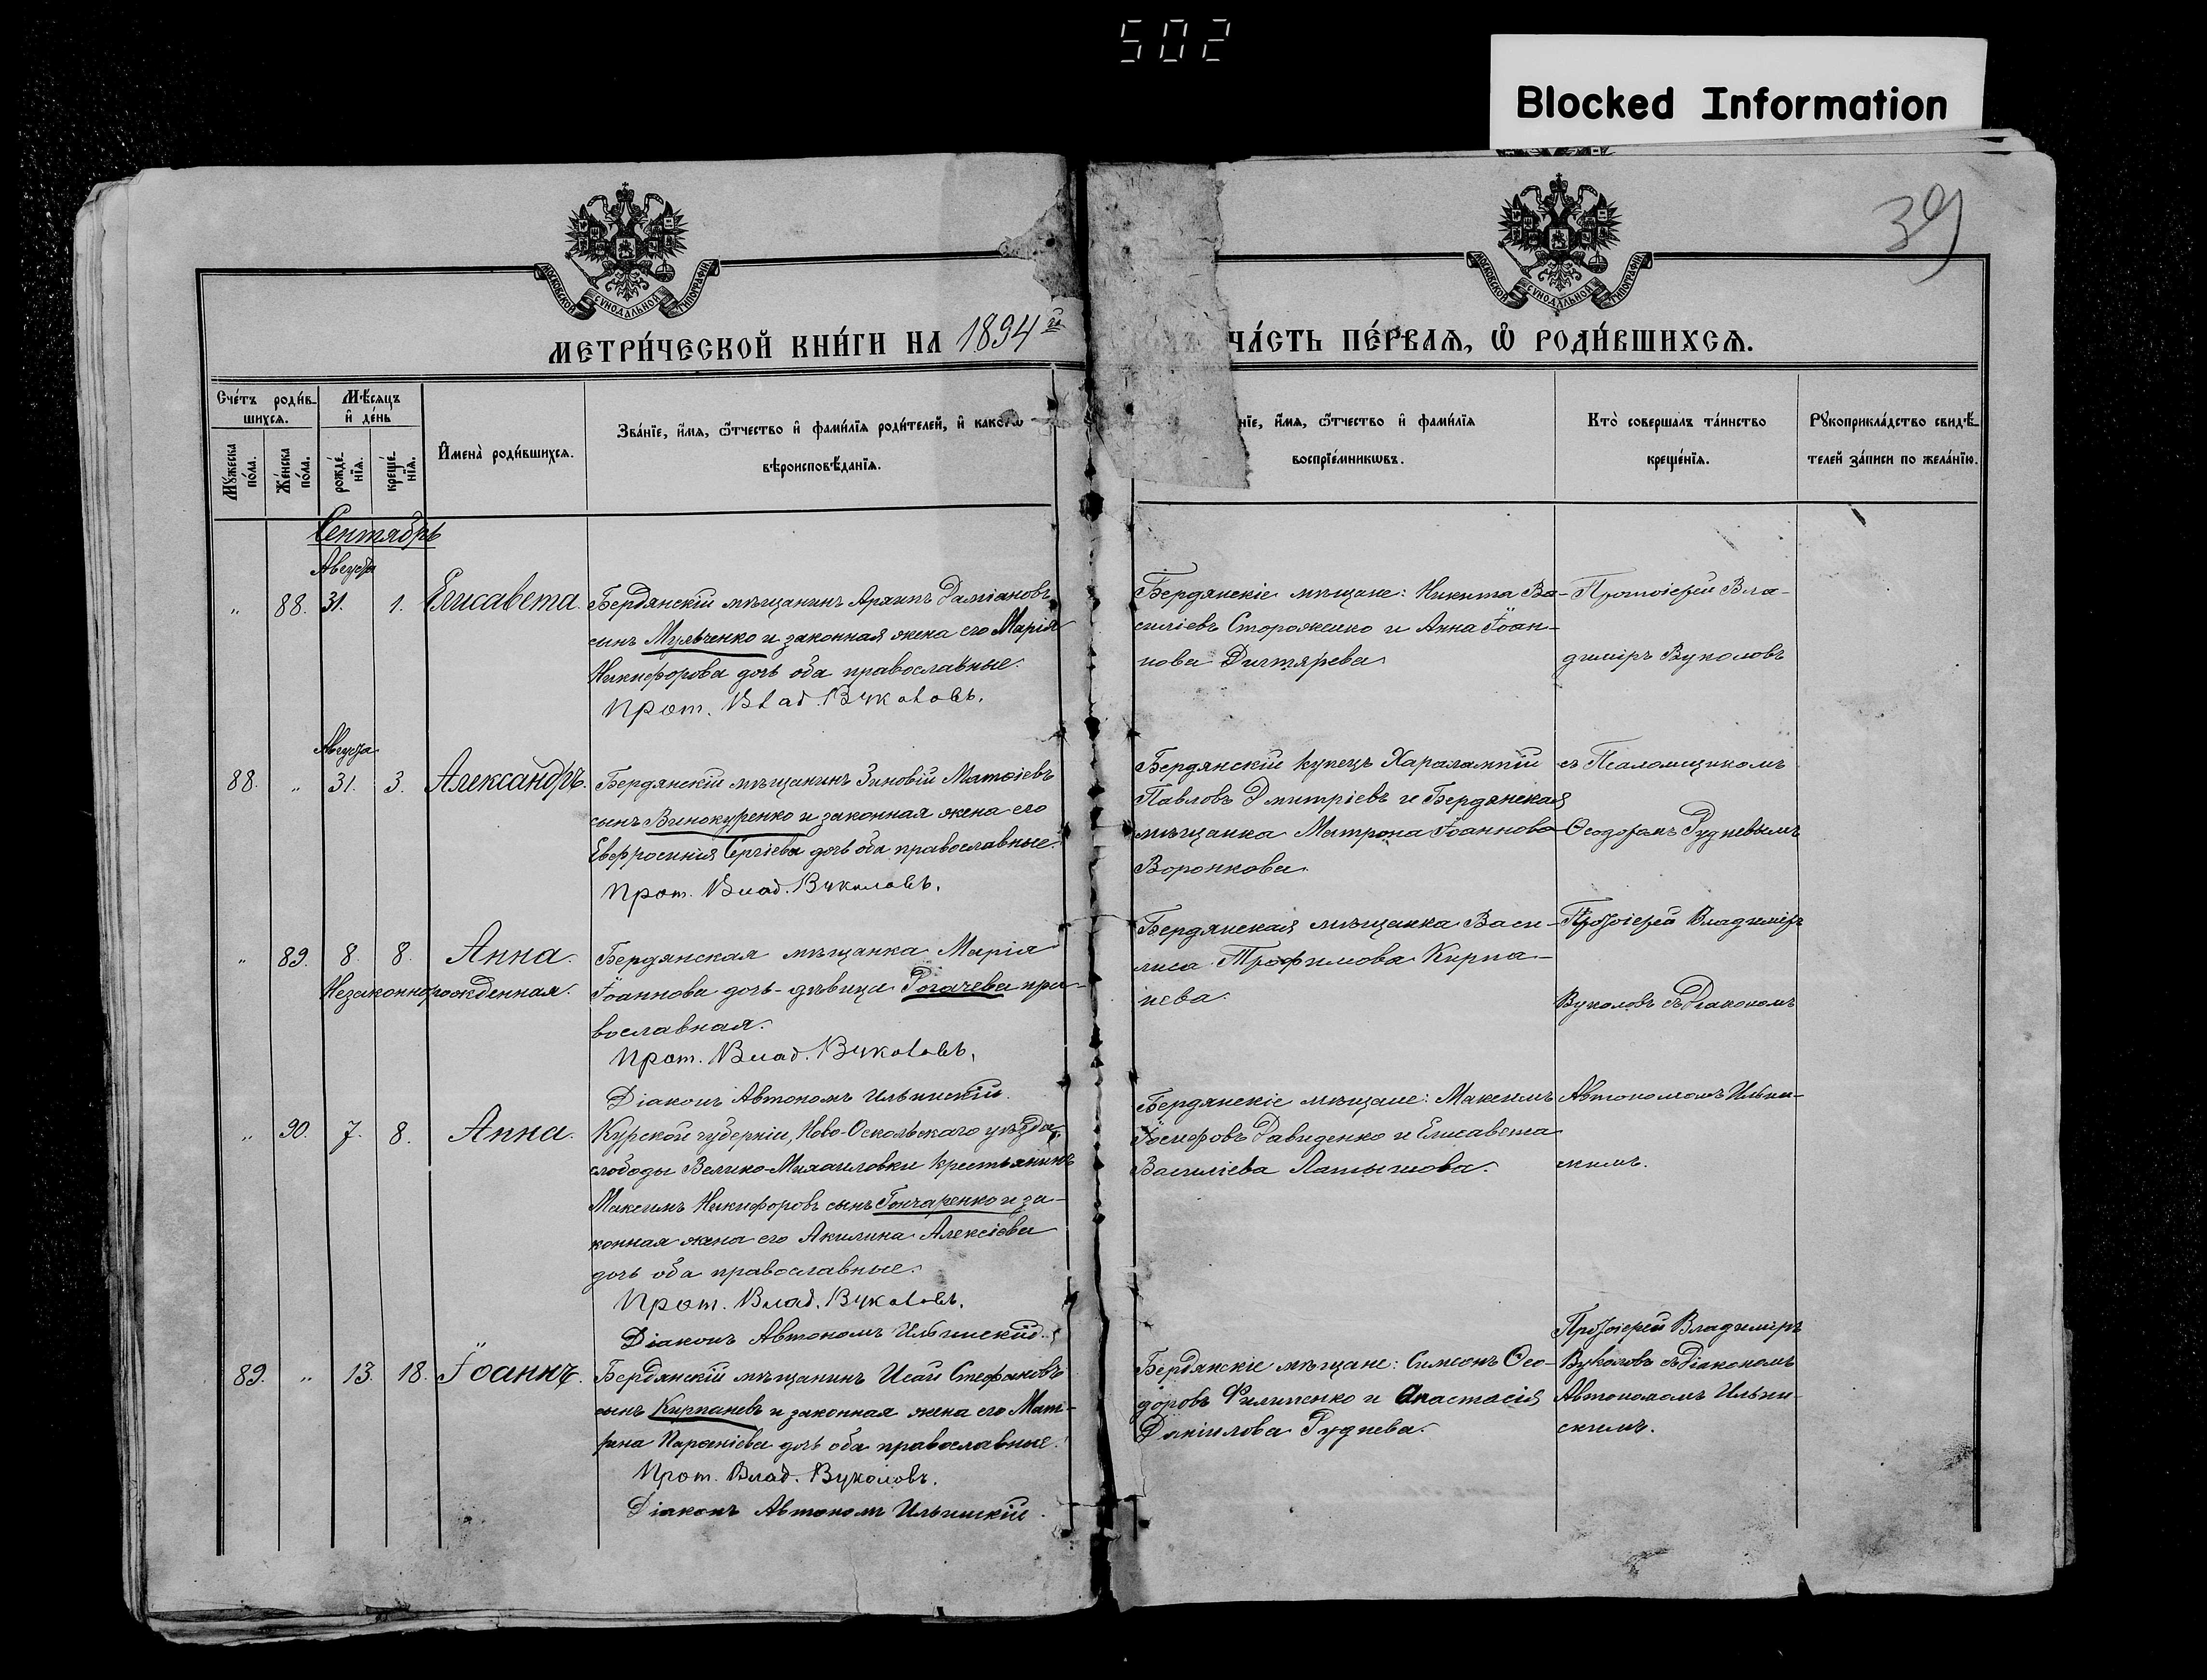 502
Blocked Information
39
МОСКОВСКОЙ СУНОДАЛЬНОЙ ТИПОГРАФІИ
МОСКОВСКОЙ СУНОДАЛЬНОЙ ТИПОГРАФІИ
МЕТРИ́ЧЕСКОЙ КНИ́ГИ НА 1894й
ЧА́СТЬ ПЕ́РВАѦ, Ѡ҆ РОДИ́ВШИХСѦ.
Сче́тъ роди́в-
шихсѧ.
Мꙋжеска по́ла.
Же́нска по́ла.
Мѣ́сѧцъ
и҆ де́нь
рожде́-
нїѧ.
креще́-
нїѧ.
И҆мена̀ роди́вшихсѧ.
Зва́нїе, и҆́мѧ, ѻ҆́тчество и҆ фами́лїѧ роди́телей, и҆ какогѡ
вѣроисповѣ́данїѧ.
нїе, и҆́мѧ, ѻ҆́тчество и҆ фами́лїѧ
воспрїе́мникѡвъ.
Кто̀ совершалъ та́инство
креще́нїѧ.
Рꙋкоприкла́дство свидѣ́-
телей за́писи по жела́нїю.
Сентябрь
Августа
„ 88. 31. 1. Елисавета.
Бердянскій мѣщанинъ Архипъ Даміановъ
сынъ Мульченко и законная жена его Марія
Никифорова дочь оба православные.
Прот. Влад. Вуколовъ.
Бердянскіе мѣщане: Никита Ва-
силіевъ Стороженко и Анна Іоан-
нова Дихтярева.
Протоіерей Вла-
димiръ Вуколовъ
Августа
88. „ 31. 3. Александръ.
Бердянскій мѣщанинъ Зиновій Матѳіевъ
сынъ Винокуренко и законная жена его
Евфросинія Сергіева дочь оба православные.
Прот. Влад. Вуколовъ.
Бердянскій купецъ Харалампій
Павловъ Дмитріевъ и Бердянская
мѣщанка Матрона Іоаннова
Воронкова.
съ Псаломщикомъ
Ѳеодоромъ Рудневымъ
„ 89. 8. 8. Анна.
Незаконнорожденная.
Бердянская мѣщанка Марія
Іоаннова дочь-дѣвица Рогачева пра-
вославная.
Прот. Влад. Вуколовъ.
Діаконъ Автономъ Ильинскій.
Бердянская мѣщанка Васи-
лиса Трофимова Кирпа-
нева.
Протоіерей Владиміръ
Вуколовъ съ Діакономъ
„ 90. 7. 8. Анна.
Курской губерніи, Ново-Оскольскаго уѣзда,
слободы Велико-Михайловки крестьянинъ
Максимъ Никифоровъ сынъ Гончаренко и за-
конная жена его Акилина Алексіева
дочь оба православные.
Прот. Влад. Вуколовъ.
Діаконъ Автономъ Ильинскій.
Бердянскіе мѣщане: Максимъ
Іосифовъ Давиденко и Елисавета
Василіева Латышова.
Автономомъ Ильин-
скимъ.
89. „ 13. 18. Іоаннъ.
Бердянскій мѣщанинъ Исаій Стефановъ
сынъ Кирпаневъ и законная жена его Мат-
рона Парѳеніева дочь оба православные.
Прот. Влад. Вуколовъ.
Діаконъ Автономъ Ильинскій.
Бердянскіе мѣщане: Симеонъ Ѳео-
доровъ Филипенко и Анастасія
Даніилова Руднева.
Протоіерей Владиміръ
Вуколовъ съ Діакономъ
Автономомъ Ильин-
скимъ.